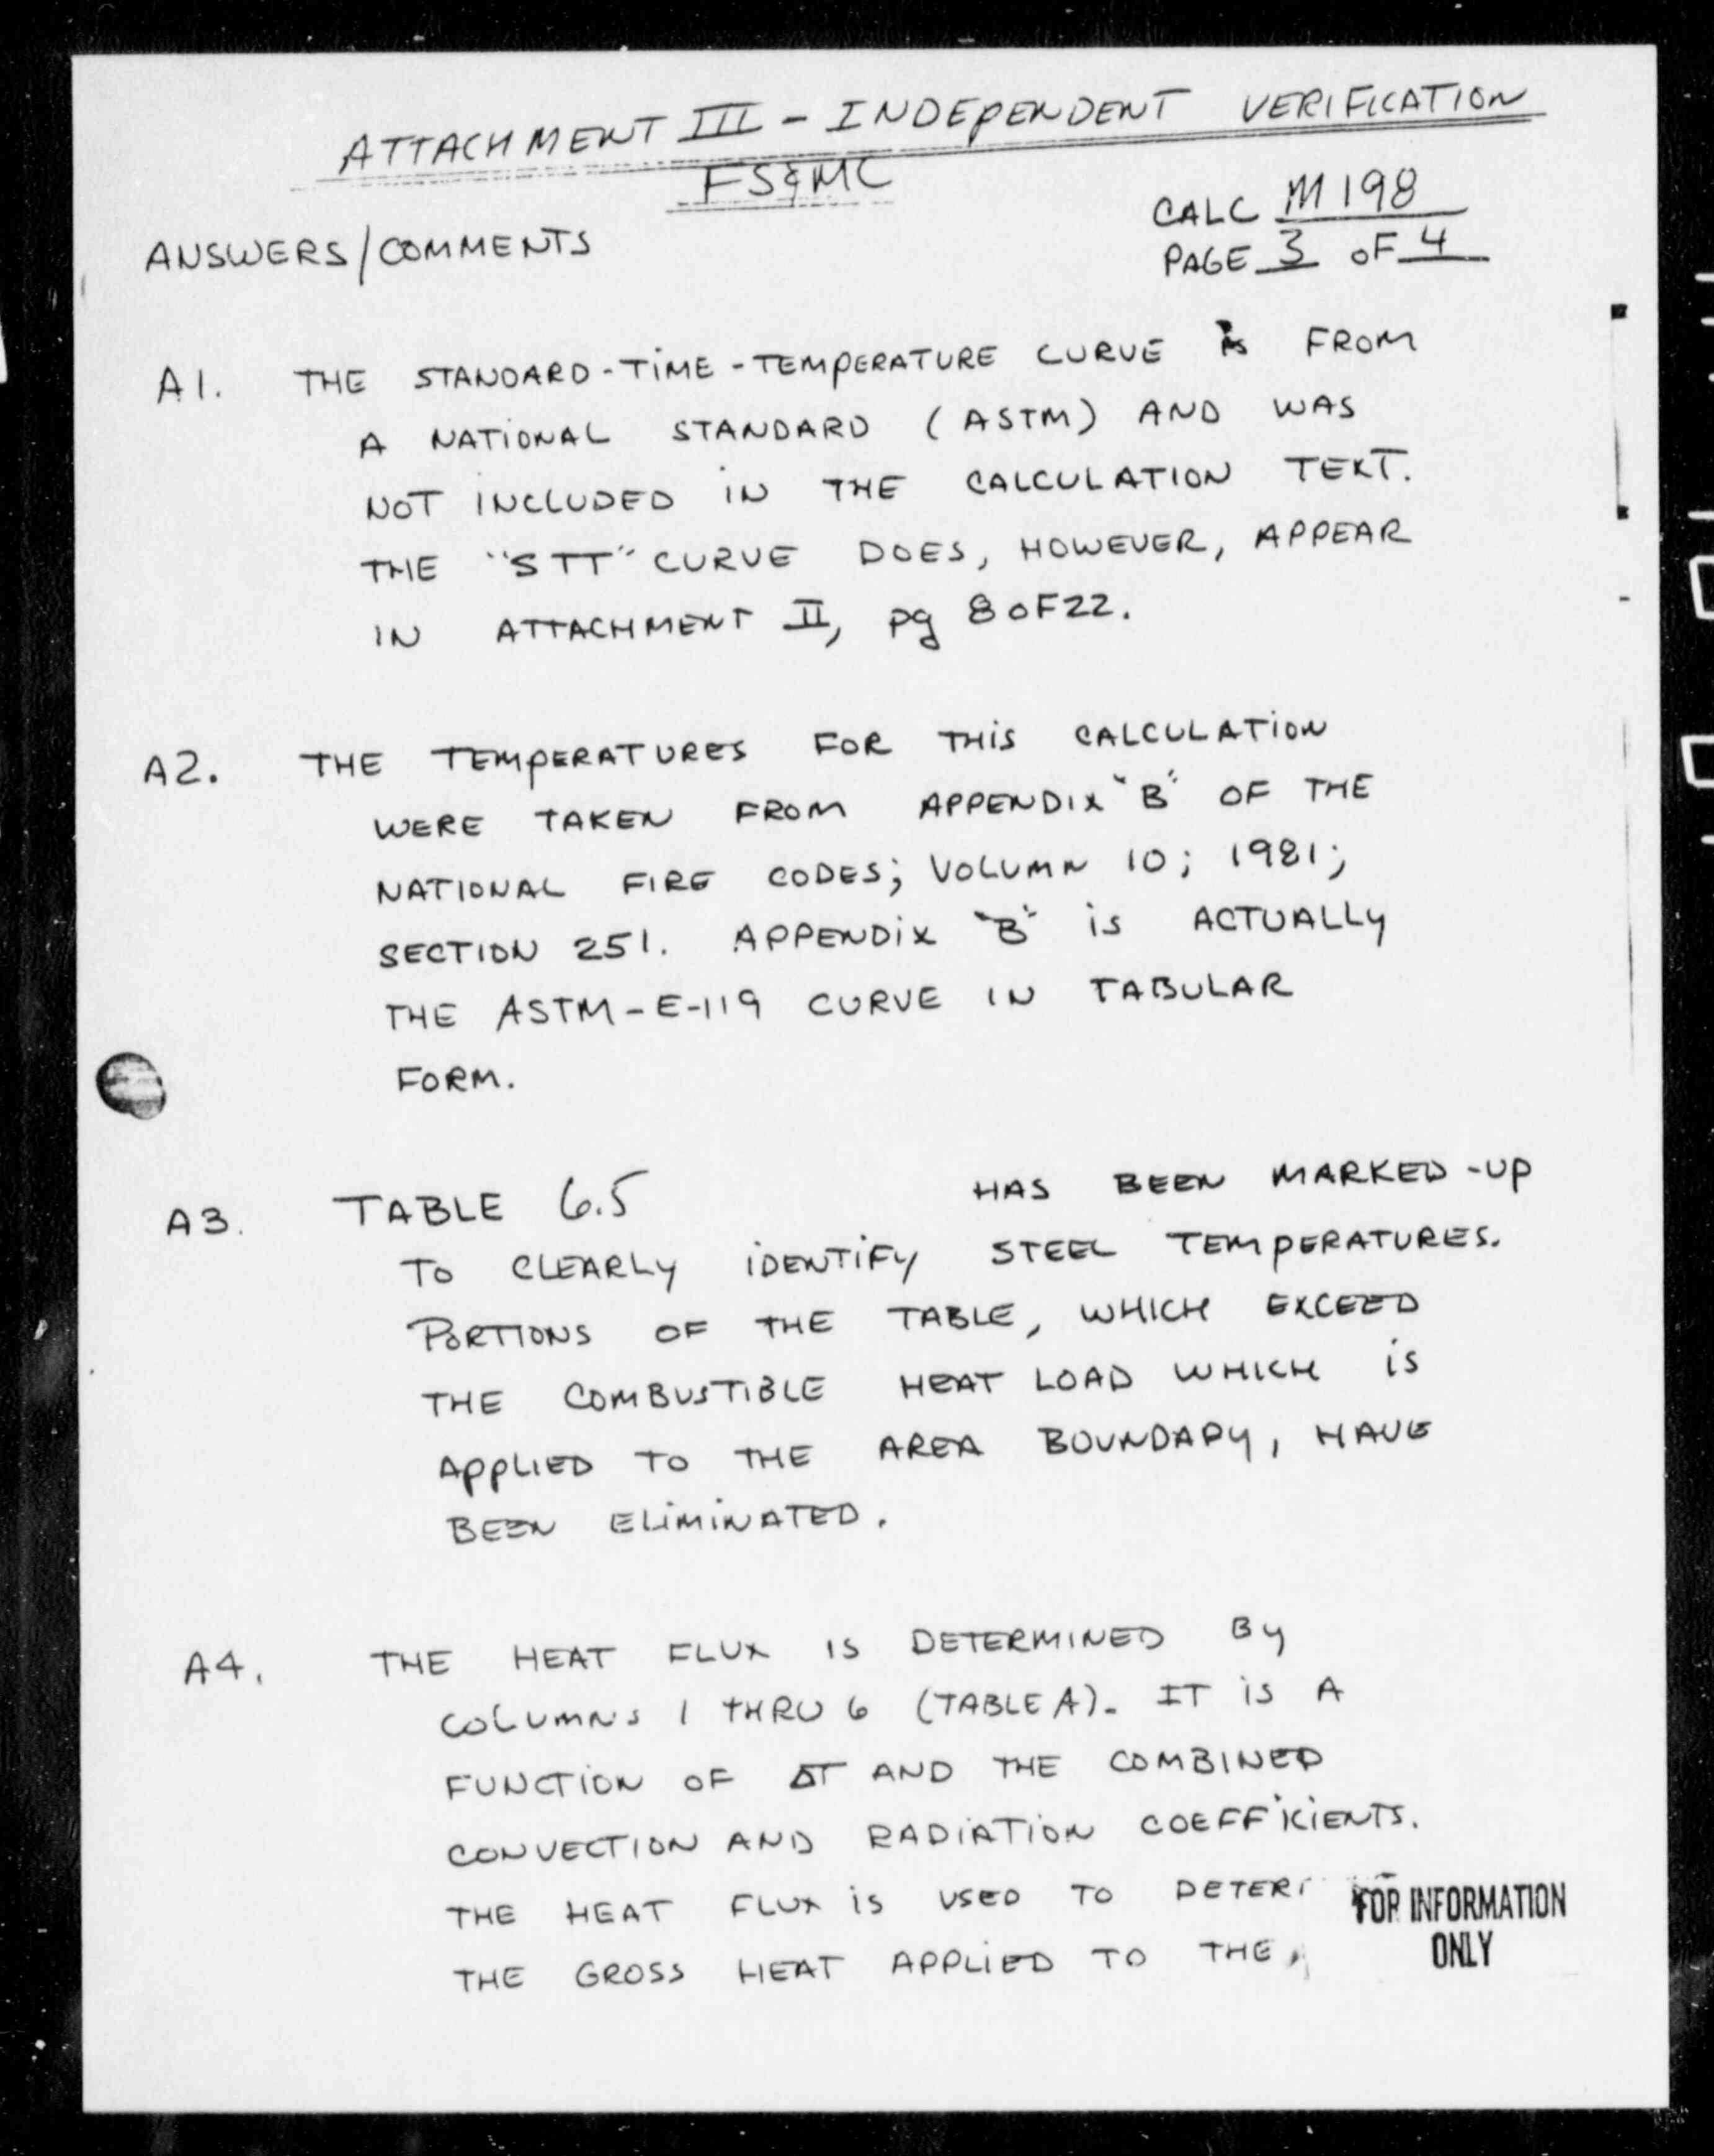 ATTACHMENT III - INDEPENDENT VERIFICATION
FS&MC
CALC M198
ANSWERS/COMMENTS
PAGE 3 OF 4
A1. THE STANDARD-TIME-TEMPERATURE CURVE is FROM
A NATIONAL STANDARD (ASTM) AND WAS
NOT INCLUDED IN THE CALCULATION TEXT.
THE "STT" CURVE DOES, HOWEVER, APPEAR
IN ATTACHMENT II, pg 8 OF 22.
A2. THE TEMPERATURES FOR THIS CALCULATION
WERE TAKEN FROM APPENDIX "B" OF THE
NATIONAL FIRE CODES; VOLUMN 10; 1981;
SECTION 251. APPENDIX "B" is ACTUALLY
THE ASTM-E-119 CURVE IN TABULAR
FORM.
A3. TABLE 6.5 HAS BEEN MARKED-UP
TO CLEARLY IDENTIFY STEEL TEMPERATURES.
PORTIONS OF THE TABLE, WHICH EXCEED
THE COMBUSTIBLE HEAT LOAD WHICH is
APPLIED TO THE AREA BOUNDARY, HAVE
BEEN ELIMINATED.
A4. THE HEAT FLUX IS DETERMINED BY
COLUMNS 1 THRU 6 (TABLE A). IT is A
FUNCTION OF ΔT AND THE COMBINED
CONVECTION AND RADIATION COEFFICIENTS.
THE HEAT FLUX is USED TO DETER
THE GROSS HEAT APPLIED TO THE
FOR INFORMATION
ONLY